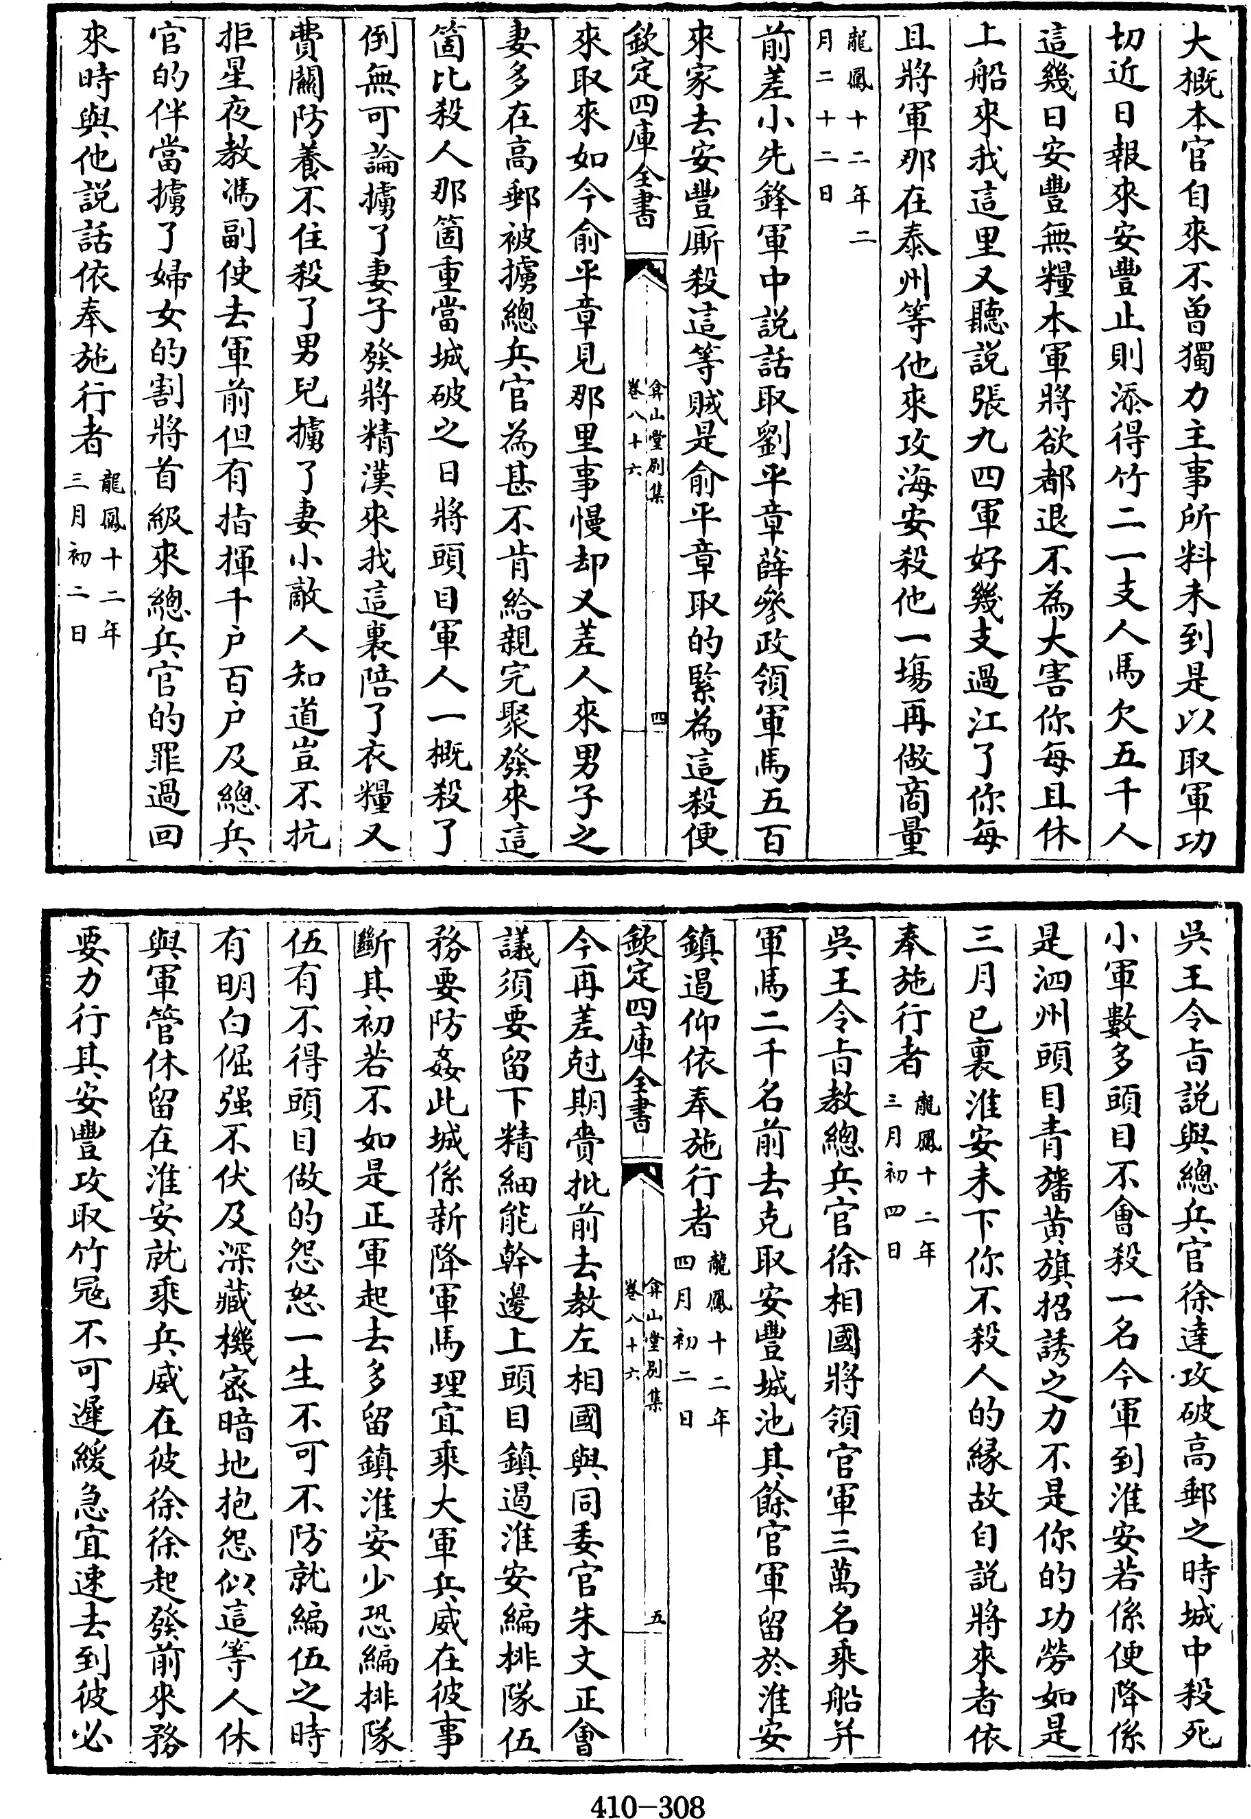 大概本官自來不曾獨力主事所料未到是以取軍功
切近日報來安豐止則添得竹二一支人馬欠五千人
這幾日安豐無糧本軍將欲都退不為大害你每且休
上船來我這里又聽説張九四軍好幾支過江了你每
且將軍那在泰州等他來攻海安殺他一塲再做商量
龍鳳十二年二
月二十二日
前差小先鋒軍中説話取劉平章薛叅政領軍馬五百
來家去安豐厮殺這等賊是俞平章取的緊為這殺便
欽定四庫全書
弇山堂别集
卷八十六
四
來取來如今俞平章見那里事慢却又差人來男子之
妻多在高郵被擄總兵官為甚不肯給親完聚發來這
箇比殺人那箇重當城破之日將頭目軍人一概殺了
倒無可論擄了妻子發將精漢來我這裏陪了衣糧又
費關防養不住殺了男兒擄了妻小敵人知道豈不抗
拒星夜教馮副使去軍前但有指揮千户百户及總兵
官的伴當擄了婦女的割將首級來總兵官的罪過回
來時與他説話依奉施行者
龍鳳十二年
三月初二日
吳王令旨説與總兵官徐達攻破高郵之時城中殺死
小軍數多頭目不會殺一名今軍到淮安若係便降係
是泗州頭目青旛黄旗招誘之力不是你的功勞如是
三月已裏淮安未下你不殺人的縁故自説將來者依
奉施行者
龍鳳十二年
三月初四日
吳王令旨教總兵官徐相國將領官軍三萬名乘船并
軍馬二千名前去克取安豐城池其餘官軍留於淮安
鎮遏仰依奉施行者
龍鳳十二年
四月初二日
欽定四庫全書
弇山堂别集
卷八十六
五
今再差尅期賫批前去教左相國與同委官朱文正會
議須要留下精細能幹邊上頭目鎮遏淮安編排隊伍
務要防姦此城係新降軍馬理宜乘大軍兵威在彼事
斷其初若不如是正軍起去多留鎮淮安少恐編排隊
伍有不得頭目做的怨怒一生不可不防就編伍之時
有明白倔强不伏及深藏機宻暗地抱怨似這等人休
與軍管休留在淮安就乘兵威在彼徐徐起發前來務
要力行其安豐攻取竹冦不可遲緩急宜速去到彼必
410-308